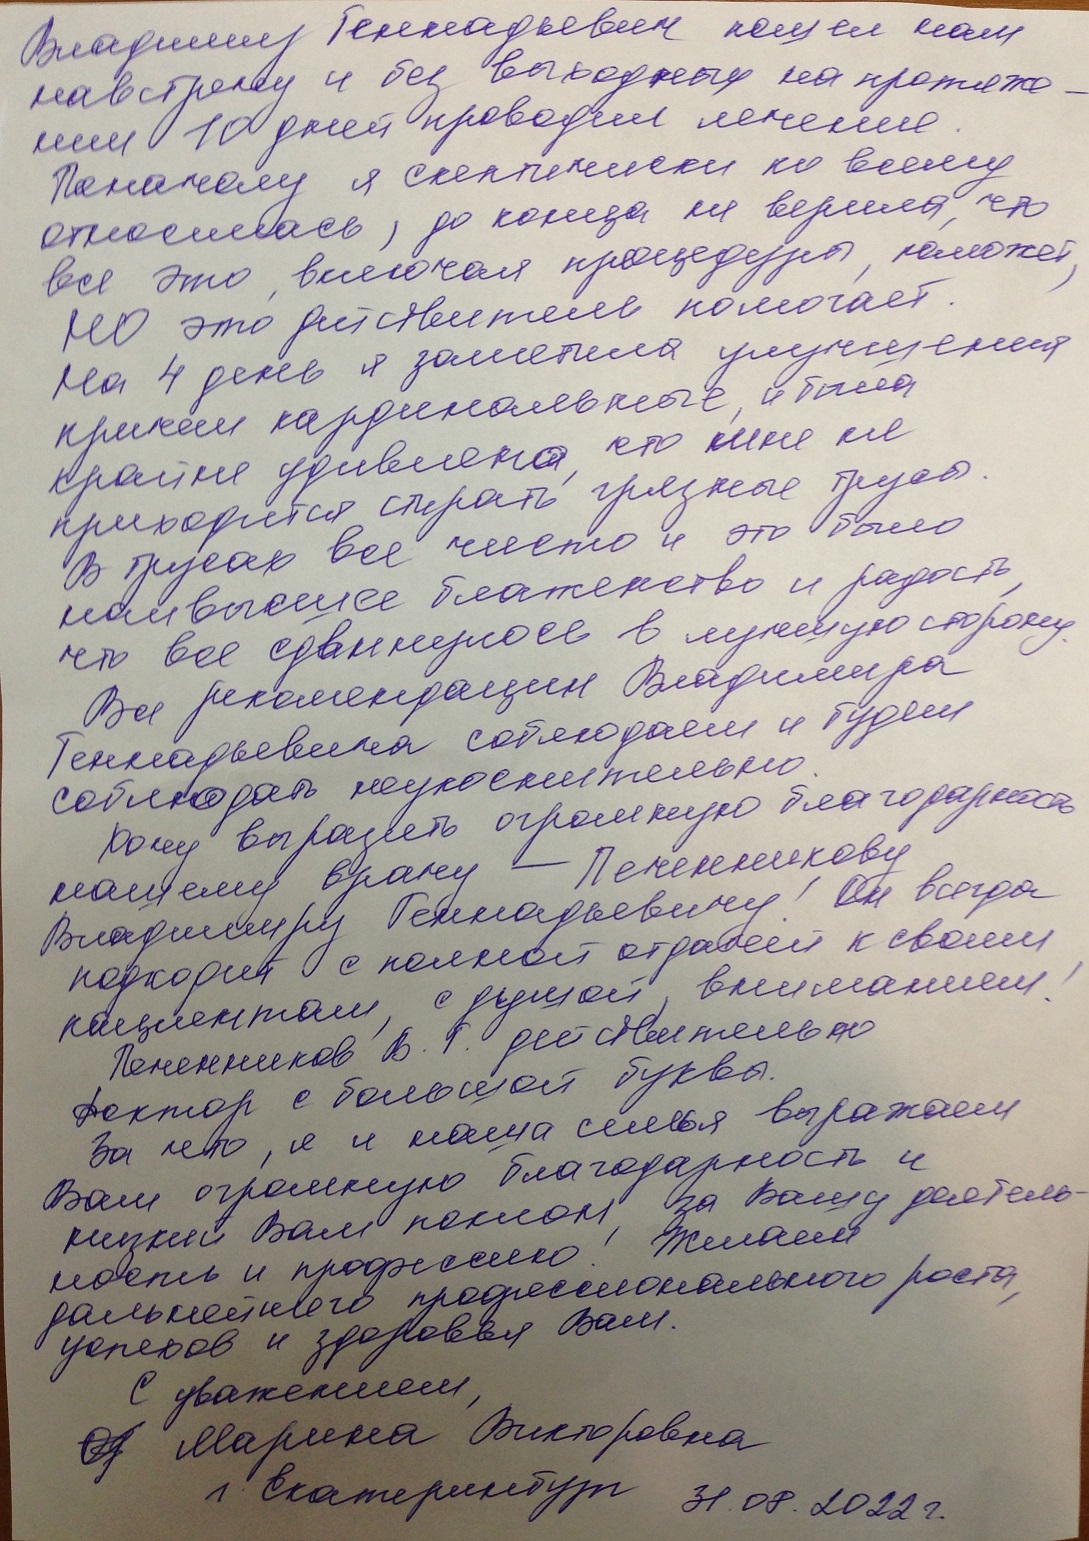 Владимир Геннадьевич пошел нам
навстречу и без выходных на протяже-
нии 10 дней проводил лечение.
Поначалу я скептически ко всему
относилась, до конца не верила, что
все это, включая процедуры, поможет,
НО это действитель помогает.
На 4 день я заметила улучшения
причем кардинальные, и была
крайне удивлена, что мне не
приходится стирать грязные трусы.
В трусах все чисто и это было
наивысшее блаженство и радость,
что все сдвинулось в лучшую сторону.
Все рекомендации Владимира
Геннадьевича соблюдаем и будем
соблюдать неукоснительно.
Хочу выразить огромную благодарность
нашему врачу — Печенникову
Владимиру Геннадьевичу! Он всегда
подходит с полной отдачей к своим
пациентам, с душой, вниманием!
Печенников В. Г. действительно
Доктор с большой буквы.
За что, я и наша семья выражаем
Вам огромную благодарность и
низкий Вам поклон, за Вашу деятель-
ность и профессию! Желаем
дальнейшего профессионального роста,
успехов и здоровья Вам.
С уважением,
Марина Викторовна
г. Екатеринбург 31.08.2022 г.